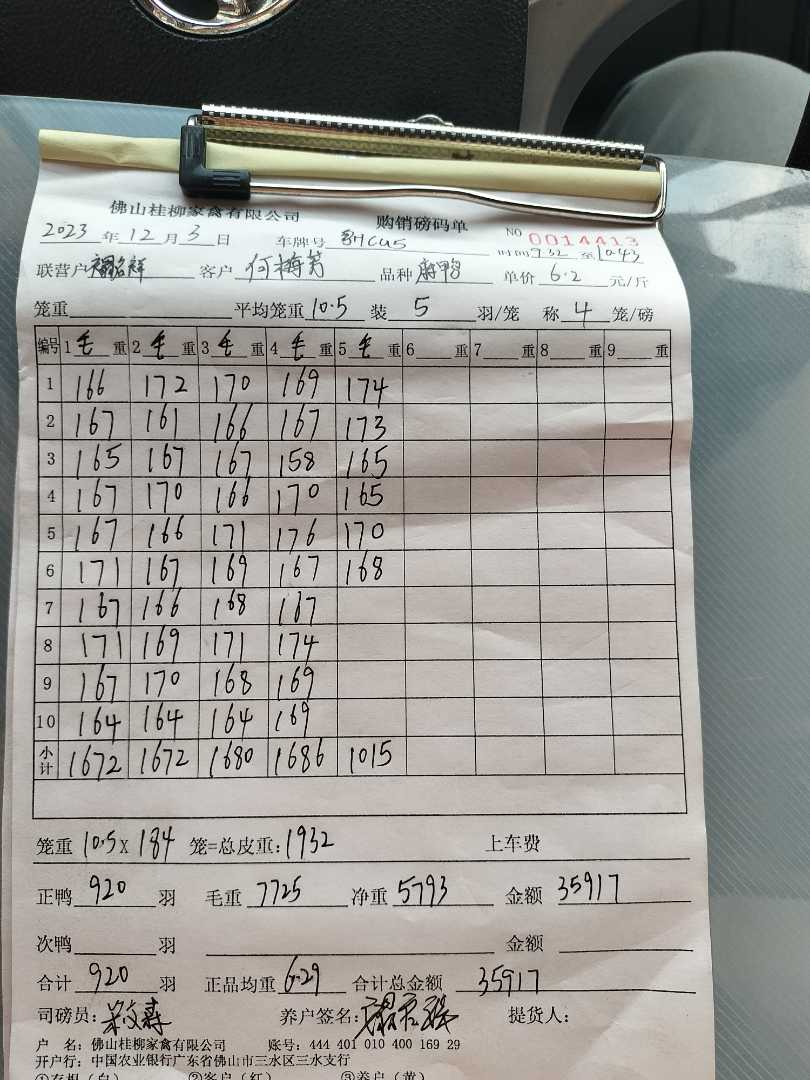 佛山桂柳家禽有限公司 购销磅码单 NO 0014413
2023年12月3日 车牌号 时间732至1043
联营户 客户 何梅芳 品种 麻鸭 单价 6.2 元/斤
笼重 平均笼重10.5 装 5 羽/笼 称 4 笼/磅
编号 1毛重 2毛重 3毛重 4毛重 5毛重 6重 7重 8重 9重
1 166 172 170 169 174
2 167 161 166 167 173
3 165 167 167 158 165
4 167 170 166 170 165
5 167 166 171 176 170
6 171 167 169 167 168
7 167 166 168 167
8 171 169 171 174
9 167 170 168 169
10 164 164 164 169
小计 1672 1672 1680 1686 1015
笼重 10.5 X 184 笼=总皮重:1932 上车费
正鸭 920 羽 毛重 7725 净重 5793 金额 35917
次鸭 羽 金额
合计 920 羽 正品均重 6.29 合计总金额 35917
司磅员: 养户签名: 提货人:
户 名: 佛山桂柳家禽有限公司 账号: 444 401 010 400 169 29
开户行: 中国农业银行广东省佛山市三水区三水支行
①存根(白) ②客户(红) ③养户(黄)